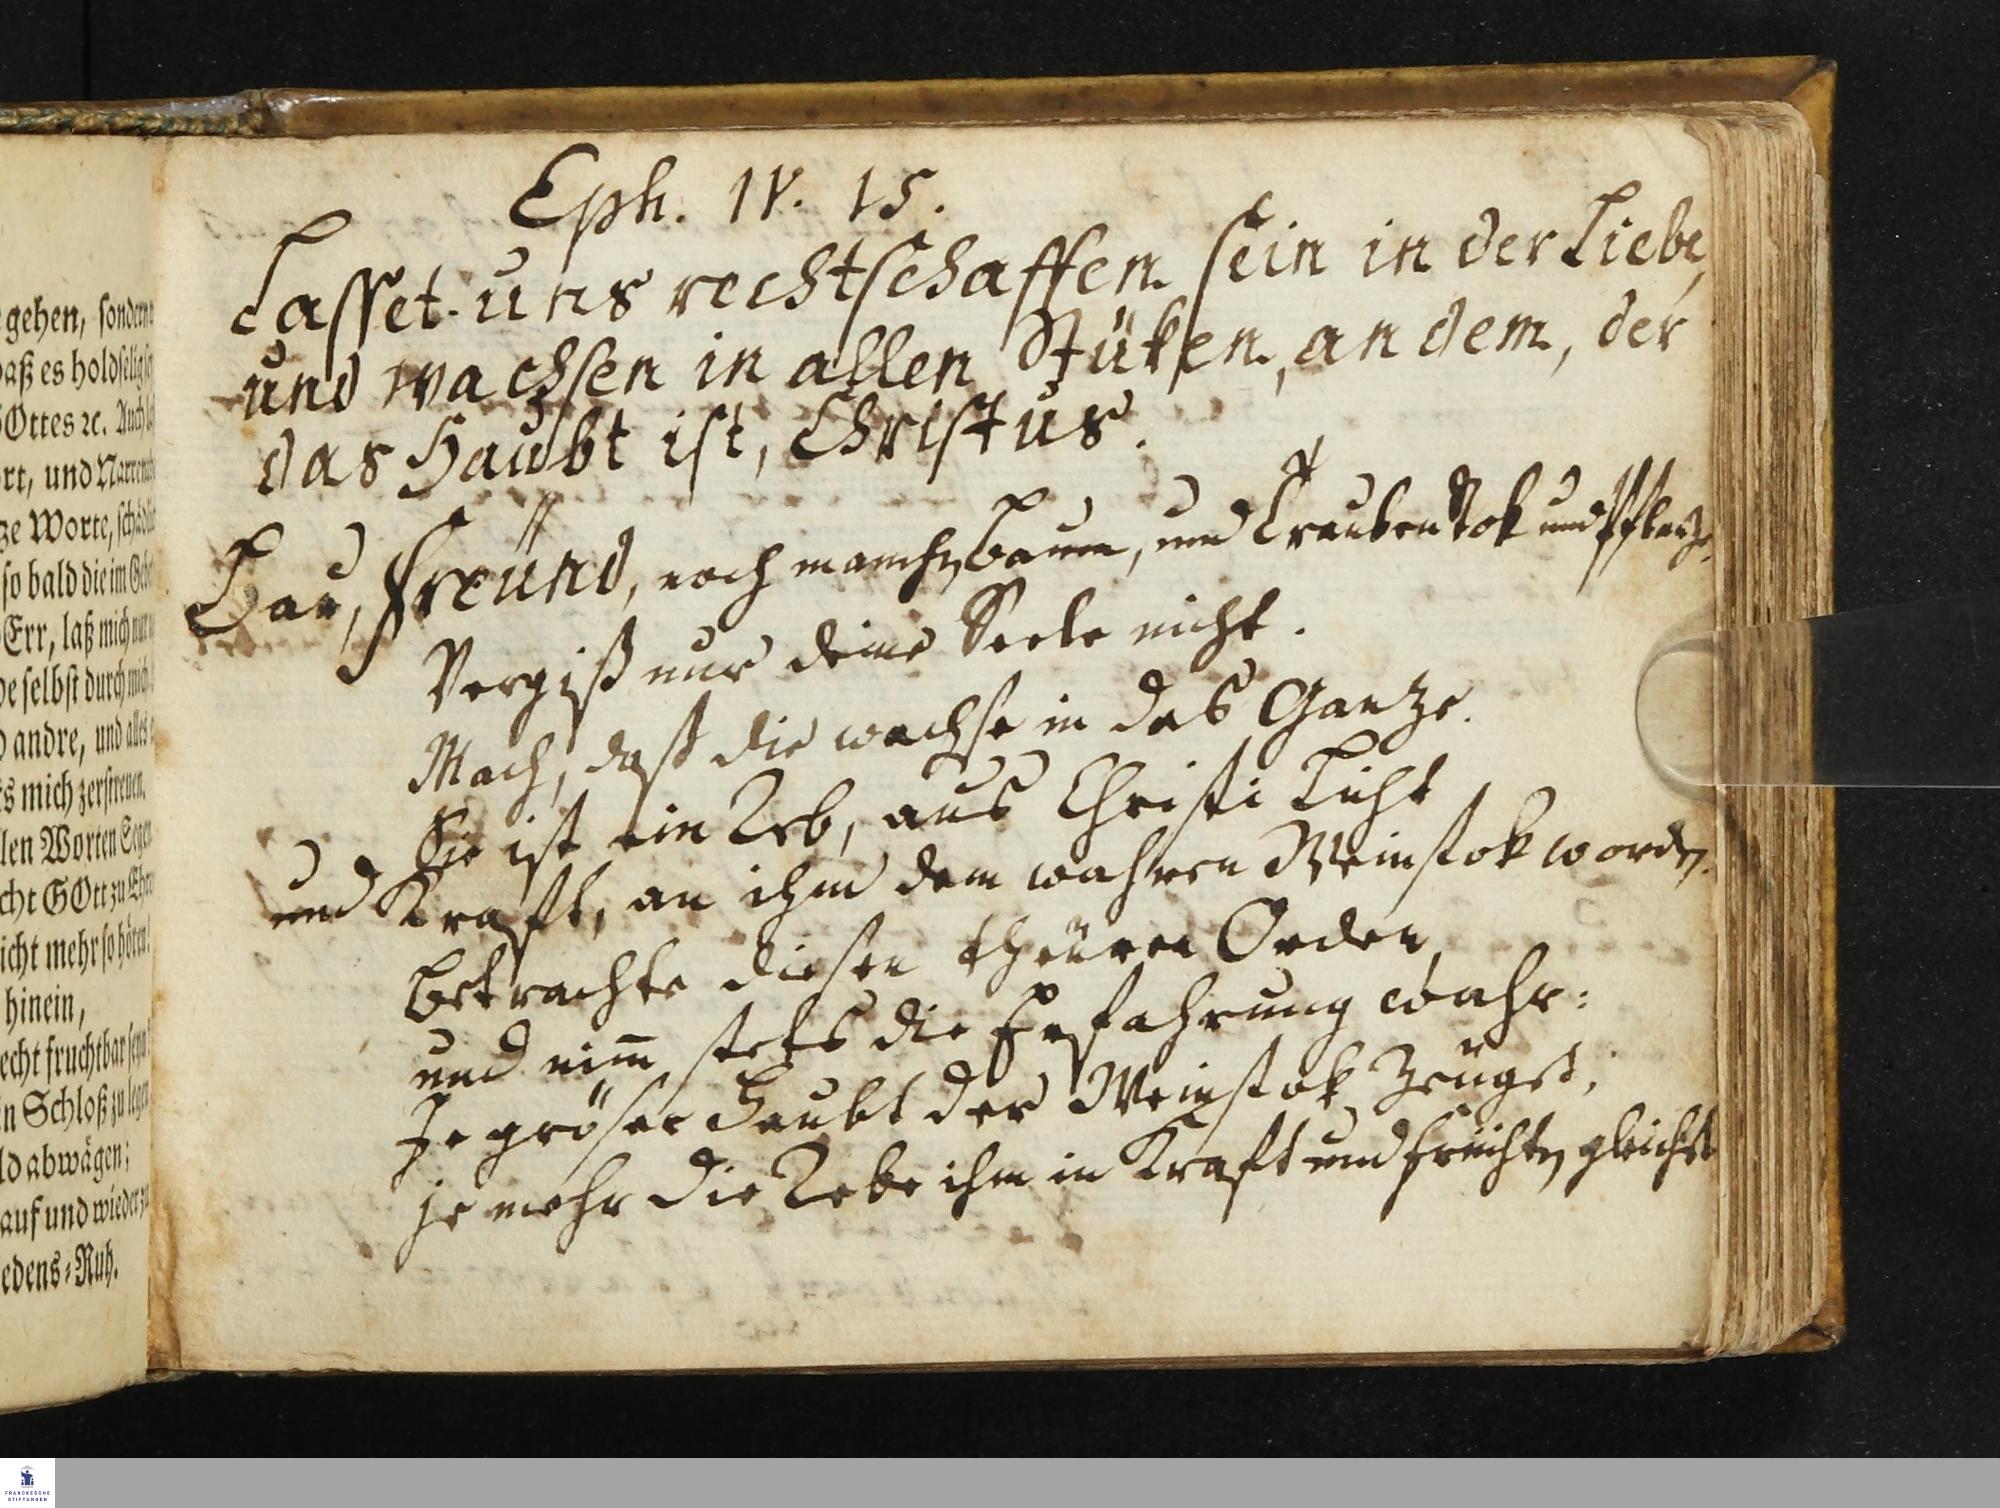 gehen, sondern
daß es holdselig sey
GOttes ꝛc. Auch
ort, und Narren
ze Worte, schäd
so bald die im
HErr, laß mich nur
de selbst durch mich
andre, und alles
ts mich zerstreuen.
len Worten Segen
cht GOtt zu Ehre
icht mehr so hören!
hinein,
echt fruchtbar seyn!
in Schloß zu legen
ld abwägen;
auf und wieder zu
edens-Ruh.
Eph. IV. 15.
Lasset uns rechtschaffen sein in der Liebe,
und wachsen in allen Stüken, an dem, der
das Haubt ist, Christus.
Bau, Freünd, noch manchen Baum, und Traubenstok und Pflantze.
Vergiß nur deine Seele nicht.
Mach, daß die wachse in das Gantze.
Sie ist ein Reb, aus Christi Licht
und Krafft, an ihm dem wahren Weinstok worden.
Betrachte diesen theüren Orden,
und nim̄ stets die Erfahrung wahr:
Je gröser Haubt der Weinstok zeüget;
je mehr die Rebe ihm in Krafft und früchten gleichet
FRANCKESCHE
STIFTUNGEN